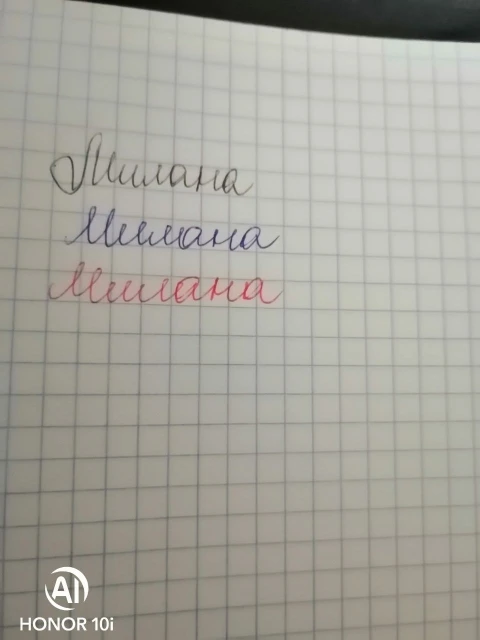 Милана
Милана
Милана
AI
HONOR 10i